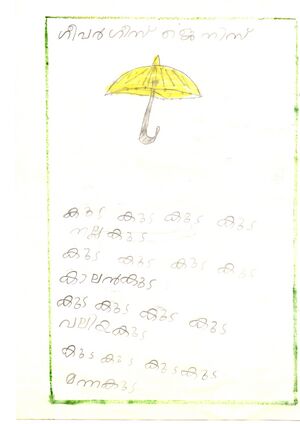 ഗീവർഗീസ് ജെ നിസ്
കുട കുട കുട കുട
നല്ല കുട
കുട കുട കുട കുട
കാലൻകുട
കുട കുട കുട കുട
വലിയകുട
കുട കുട കുടകുട
മഴകുട